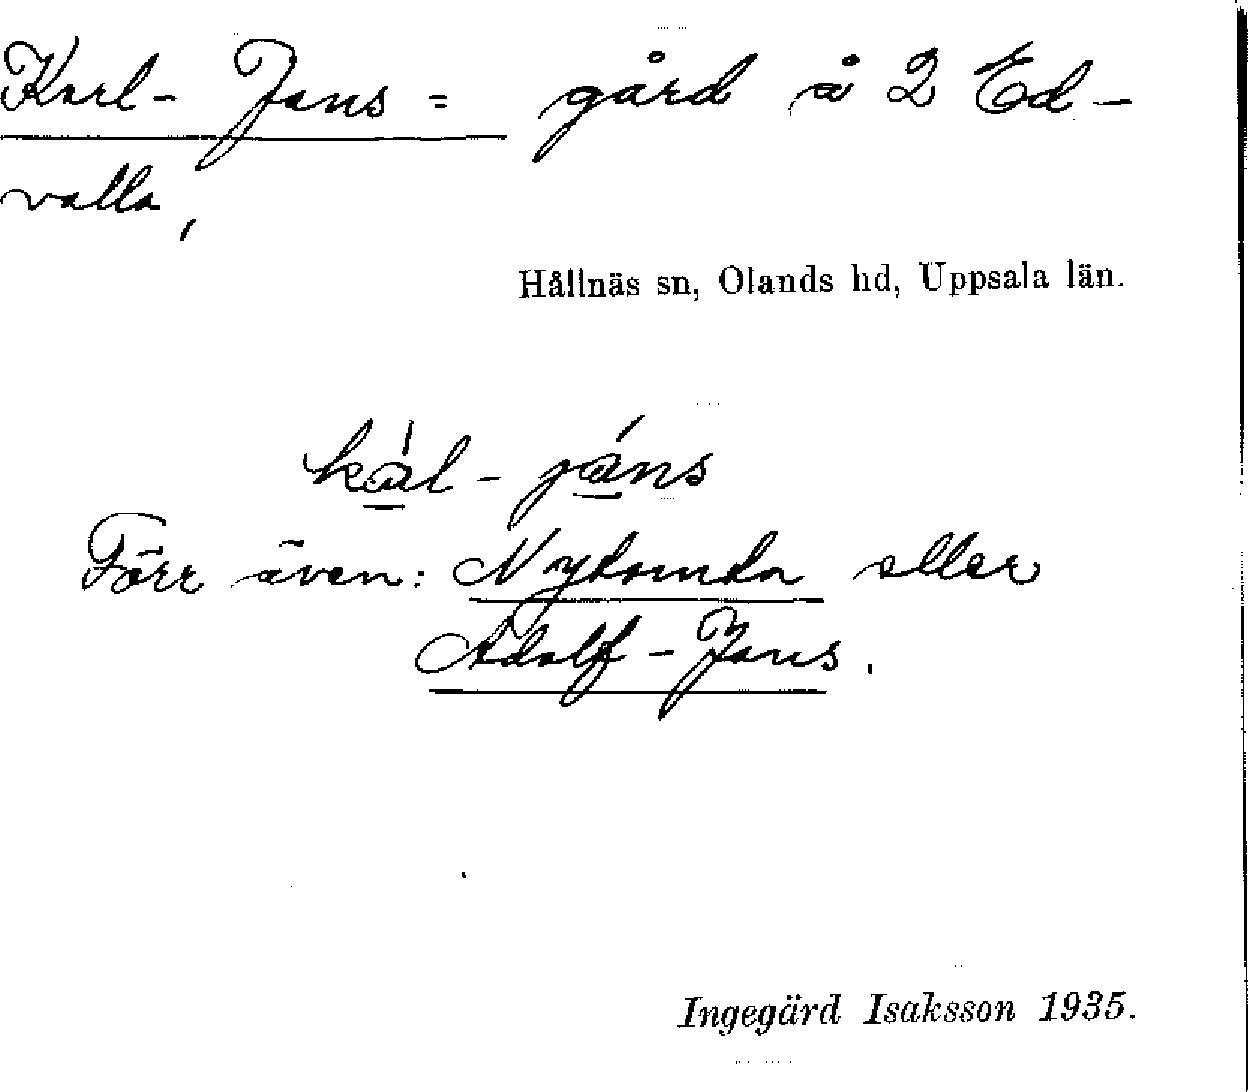 Karl-Jans = gård å 2 Ed-
valla,
Hållnäs sn, Olands hd, Uppsala län.
kál-jáns
Förr även: Nytomta eller
Adolf-Jans.
Ingegärd Isaksson 1935.